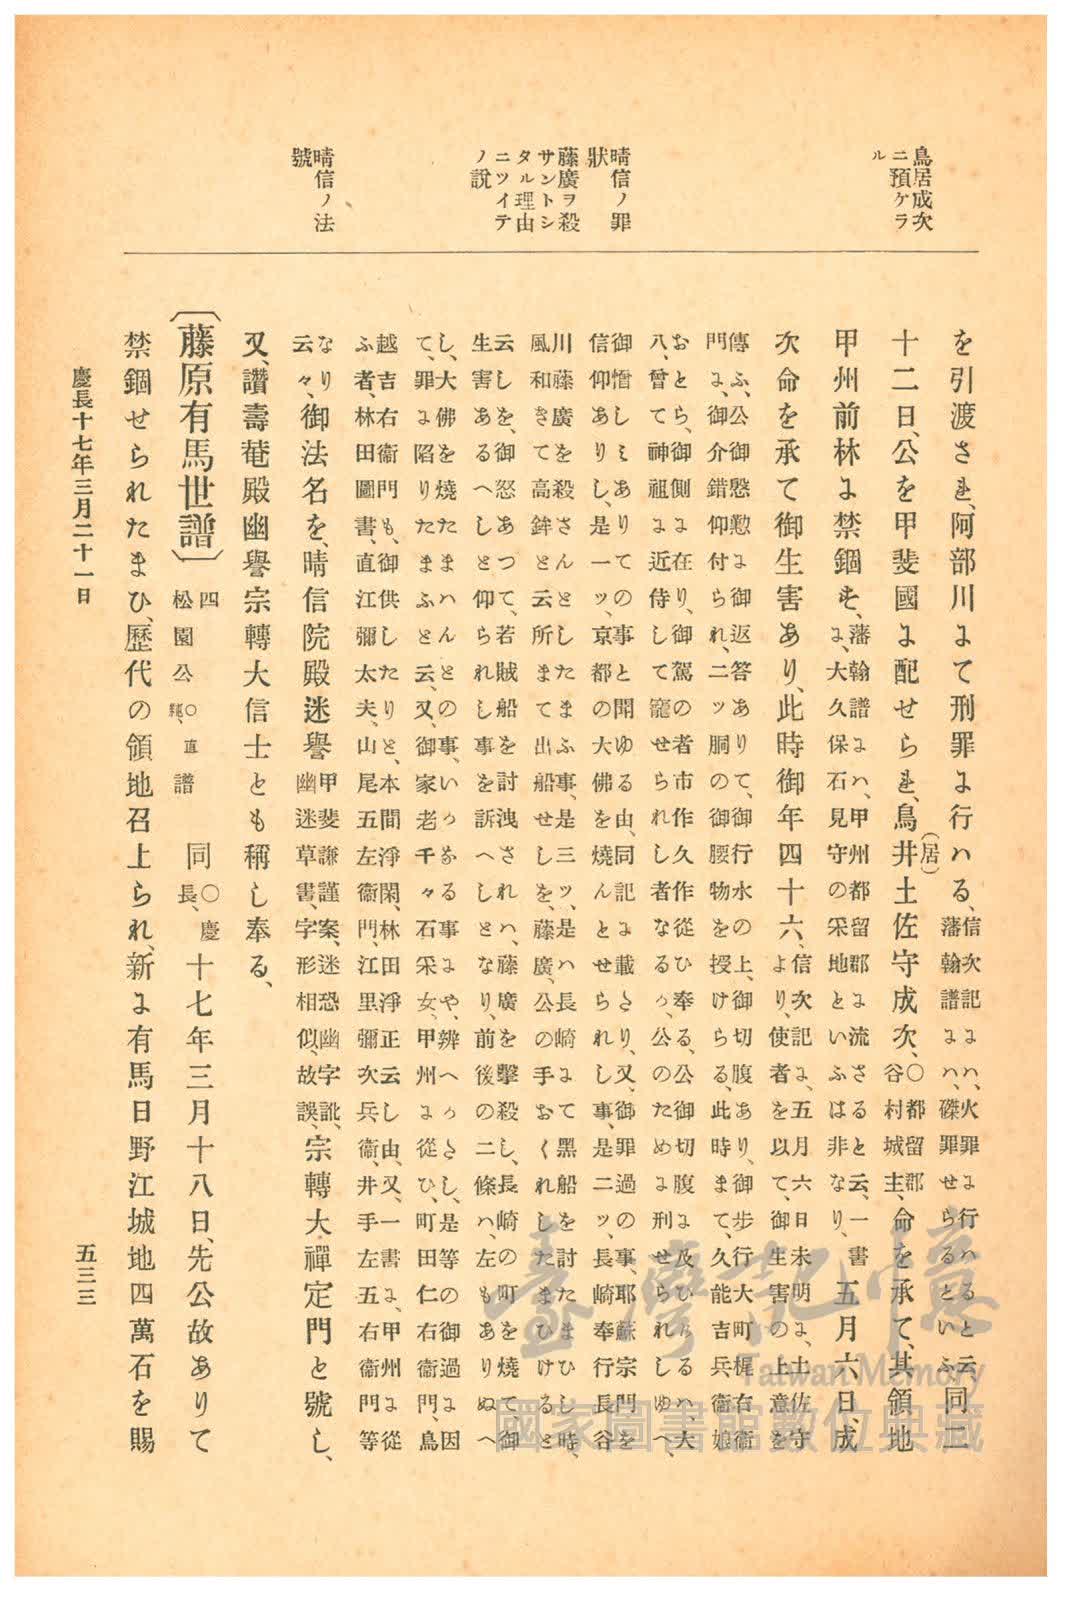 鳥居成次
ニ預ケラ
ル
晴信ノ罪
狀
藤廣ヲ殺
サントシ
タル理由
ニツイテ
ノ說
晴信ノ法
號
を引渡され、阿部川にて刑罪に行ハる、信次記にハ、火罪に行ハるゝと云、藩翰譜にハ、磔罪せらるといふ、同二
十二日、公を甲斐國に配せられ、鳥井(居)土佐守成次、○都留郡谷村城主、命を承て、其領地
甲州前林に禁錮す、藩翰譜にハ、甲州都留郡に流さると云、一書に、大久保石見守の采地といふは非なり、五月六日、成
次命を承て御生害あり、此時御年四十六、信次記に、五月六日未明に、土佐守より、使者を以て、御生害の上意を
傳ふ、公御慇懃に御返答ありて、御行水の上、御切腹あり、御步行大町梶右衞
門に、御介錯仰付られ、二ツ胴の御腰物を授けらる、此時まて、久能吉兵衞娘
おとら、御側に在り、御駕の者市作久作從ひ奉る、公御切腹に及ひるハ、大
八、曾て神祖に近侍して寵せられし者なるか、公のために刑せられしゆへ、
御憎しミありての事と聞ゆる由、同記に載たり、又、御罪過の事、耶蘇宗門を
信仰ありし、是一ッ、京都の大佛を燒んとせられし事、是二ッ、長崎奉行長谷
川藤廣を殺さんとしたまふ事、是三ッ、是ハ長崎にて黑船を討たまひし時、
風和きて高鉾と云所まて出船せしを、藤廣、公の手おくれしたまひけると
云しを、御怒あつて、若賊船を討洩されハ、藤廣を擊殺し、長崎の町を燒て御
生害あるへしと仰られし事を訴へしとなり、前後の二條ハ、左もありぬへ
し、大佛を燒たまハんとの事、いかなる事にや、辨へかたし、是等の御過に因
て、罪に陷りたまふと云、又、御家老千々石采女、甲州に從ひ、町田仁右衞門、鳥
越吉右衞門も、御供したりと、本間淨閑、林田淨正云し由、又、一書に、甲州に從
ふ者、林田圖書、直江彌太夫、山尾五左衞門、江里彌次兵衞、井手左五右衞門等
なり、云々、御法名を、晴信院殿迷譽甲斐謙謹案、迷恐幽字訛、幽迷草書、字形相似、故誤、宗轉大禪定門と號し、
又、讚壽菴殿幽譽宗轉大信士とも稱し奉る、
〔藤原有馬世譜〕四松園公○直純、譜 同○慶長、十七年三月十八日、先公故ありて
禁錮せられたまひ、歷代の領地召上られ、新に有馬日野江城地四萬石を賜
慶長十七年三月二十一日
五三三
臺灣記憶
Taiwan Memory
國家圖書館數位典藏